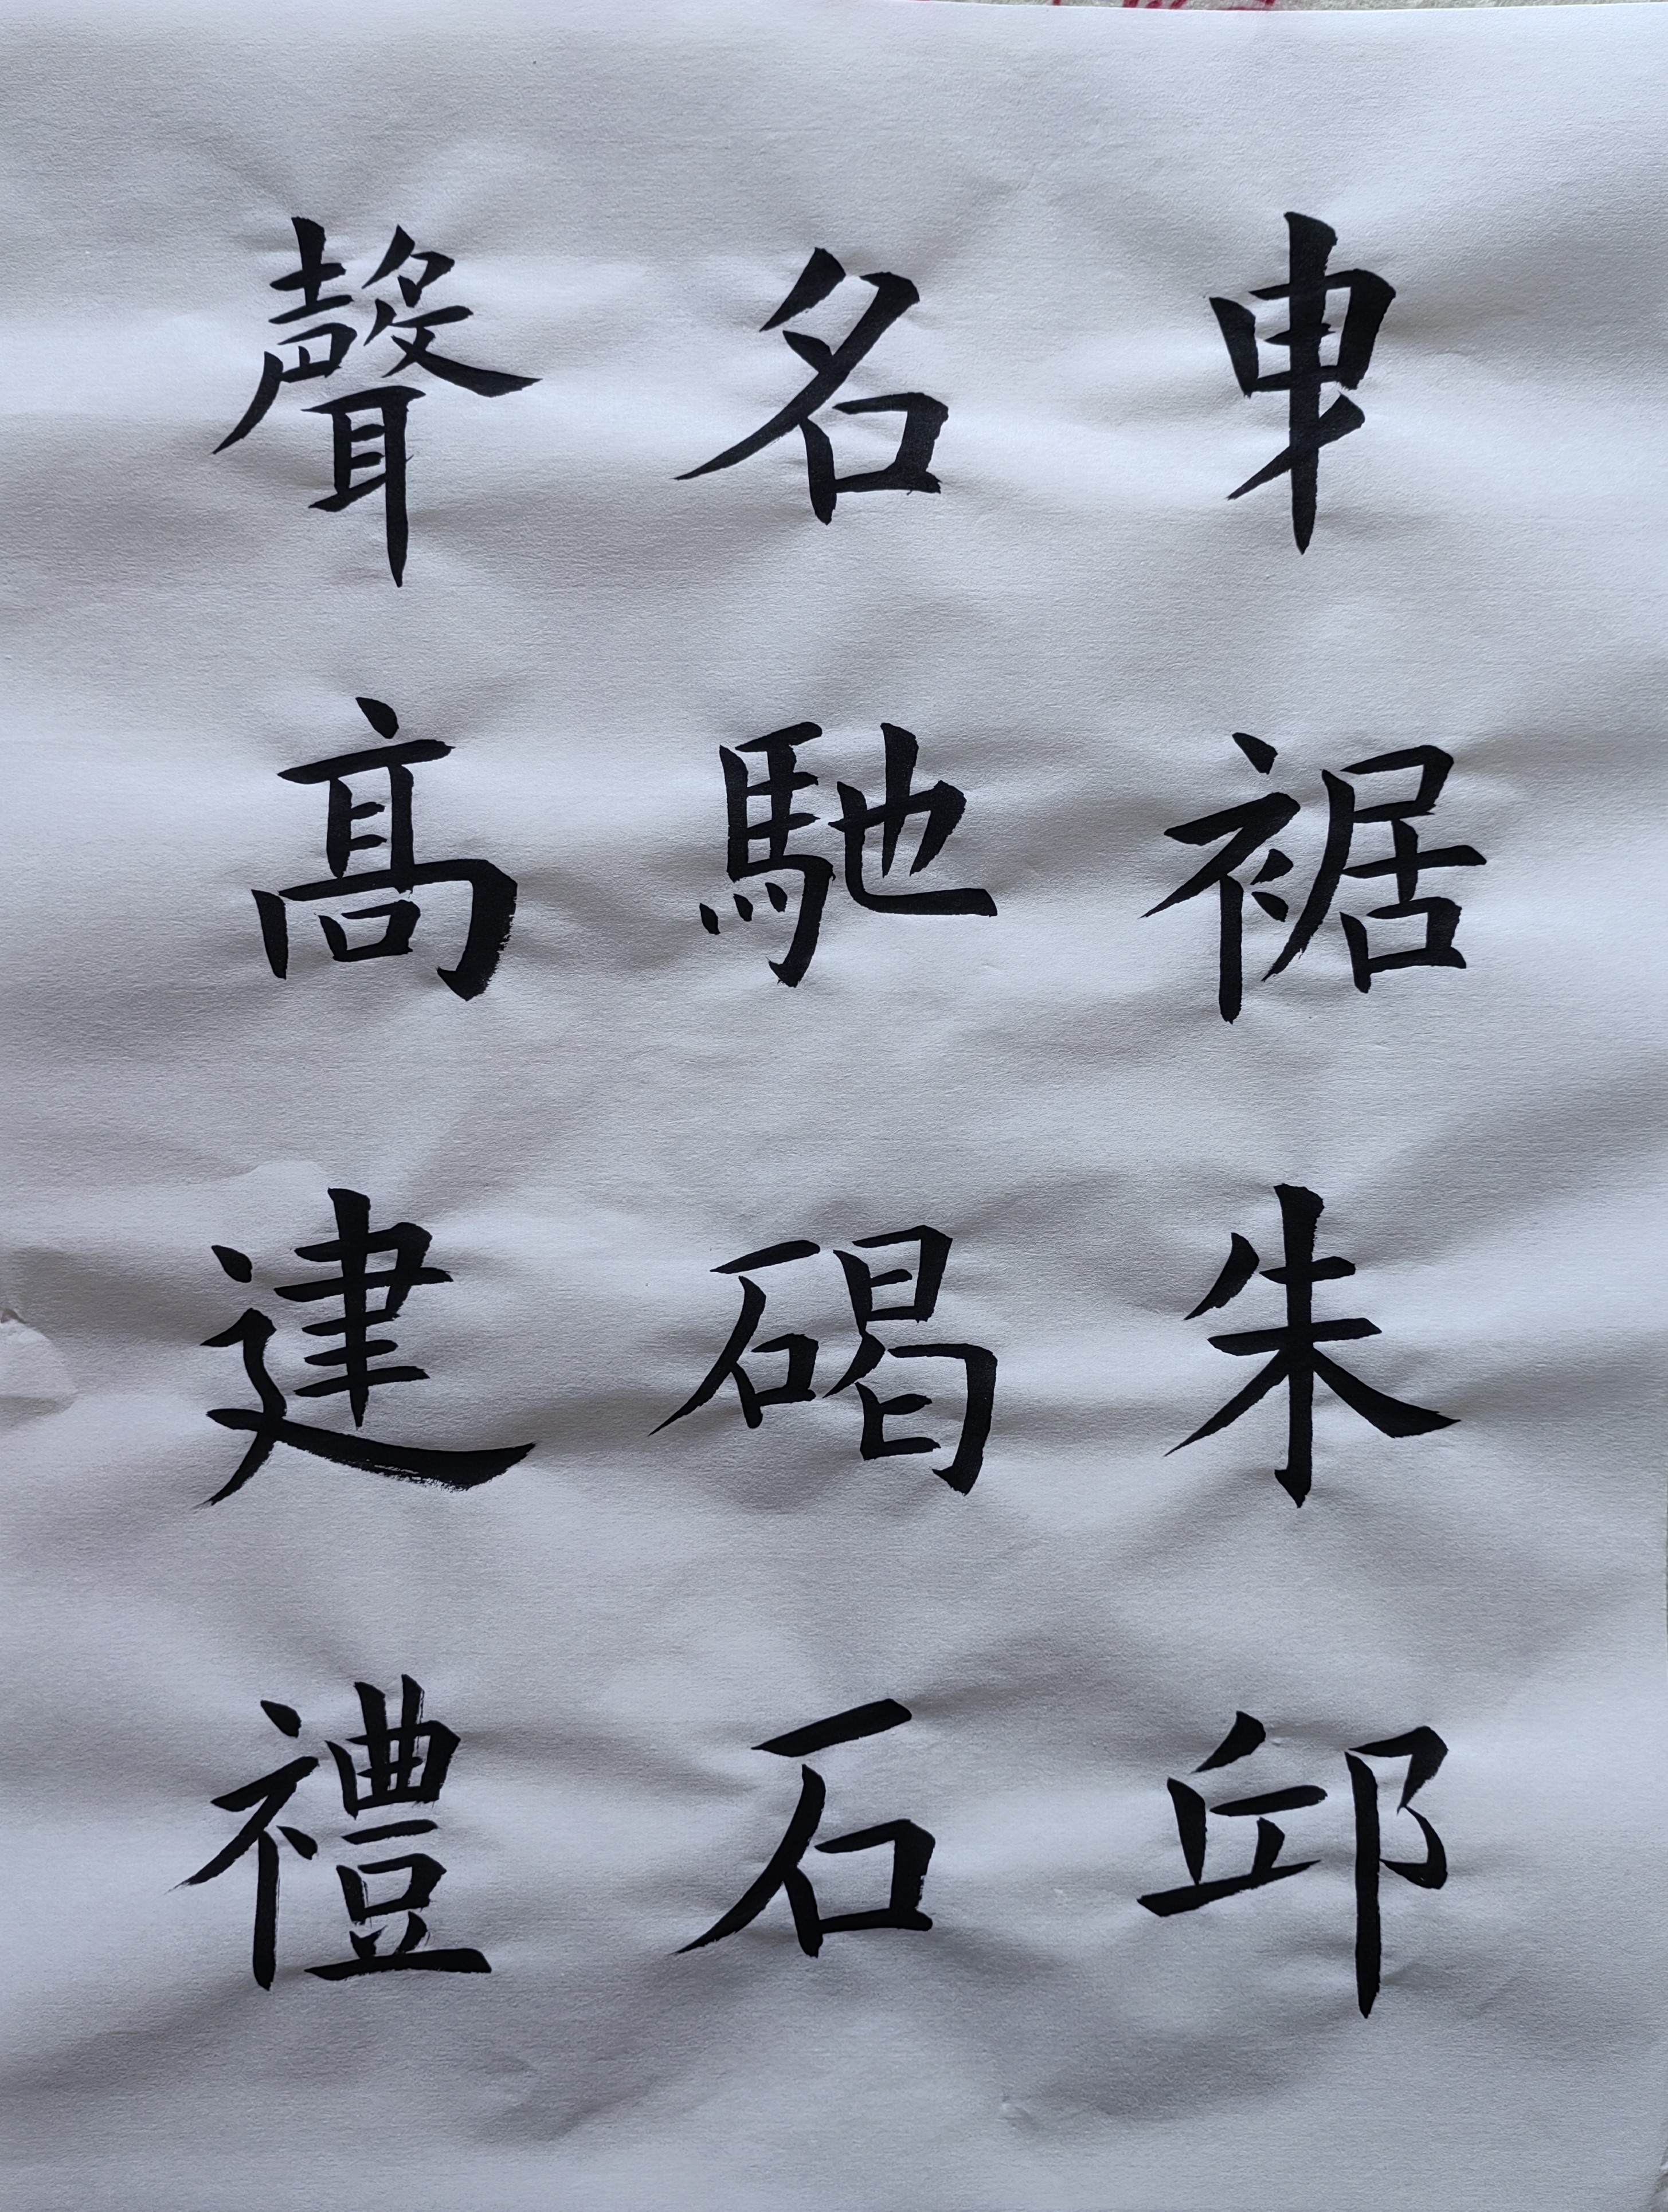 申裾朱邱
名馳碣石
聲髙建禮